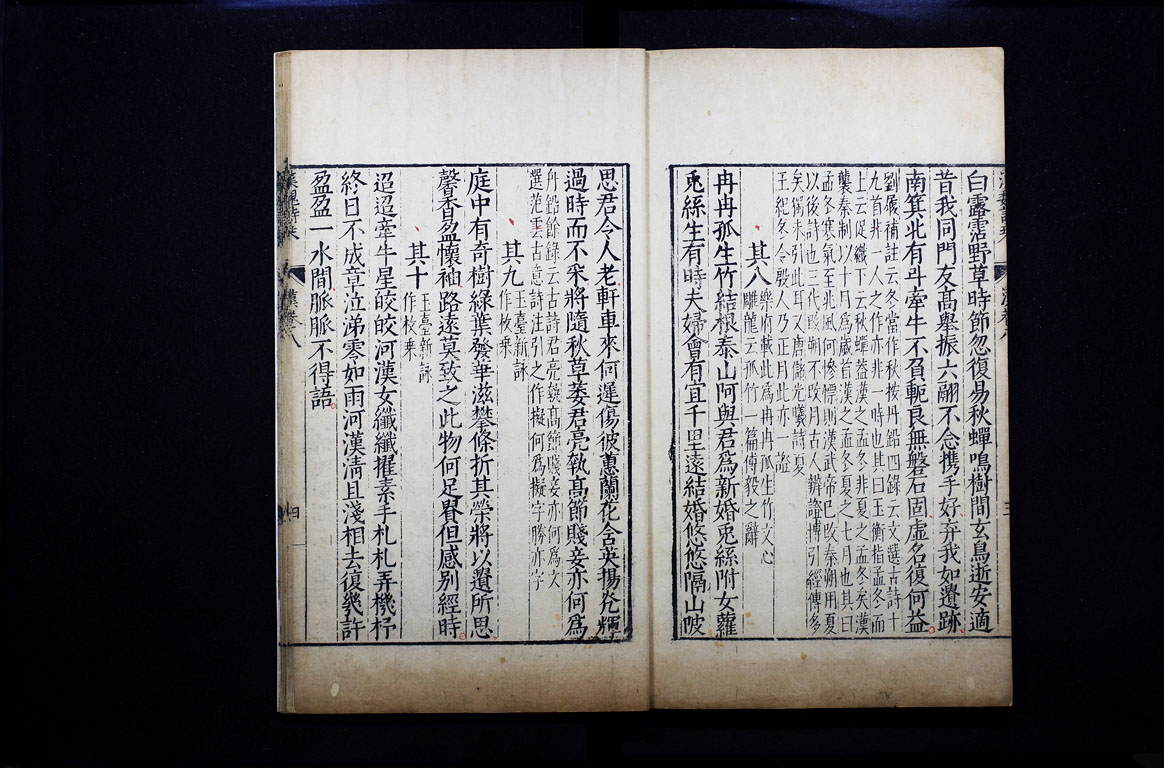 白露霑野草時節忽復易秋蟬鳴樹間玄鳥逝安適
昔我同門友髙舉振六翮不念携手好弃我如遺跡
南箕北有斗牽牛不負軛良無盤石固虛名復何益
劉履補註云冬當作秋按丹鉛四錄云文選古詩十
九首非一人之作亦非一時也其曰玉衡指孟冬而
上云促織下云秋蟬蓋漢之孟冬非夏之孟冬矣漢
襲秦制以十月爲歲首漢之孟冬夏之七月也其曰
孟冬寒氣至北風何慘慄則漢武帝已改秦朔用夏
以後詩也三代改朔不改月古人辨證博引經傳多
矣獨未引此耳又唐儲光羲詩夏
王紀冬令殷人乃正月此亦一證
其八
樂府載此爲冉冉孤生竹文心
雕龍云孤竹一篇傅毅之辭
冉冉孤生竹結根泰山阿與君爲新婚兎絲附女蘿
兎絲生有時夫婦會有宜千里遠結婚悠悠隔山陂
思君令人老軒車來何遲傷彼蕙蘭花含英揚光輝
過時而不采將隨秋草萎君亮執髙節賤妾亦何爲
丹鉛餘錄云古詩君亮執髙節賤妾亦何爲文
選范雲古意詩注引之作擬何爲擬字勝亦字
其九
玉臺新詠
作枚乗
庭中有奇樹綠葉發華滋攀條折其榮將以遺所思
馨香盈懷袖路遠莫致之此物何足貴但感别經時
其十
玉臺新詠
作枚乗
迢迢牽牛星皎皎河漢女纎纎擢素手札札弄機杼
終日不成章泣涕零如雨河漢清且淺相去復幾許
盈盈一水間脈脈不得語
四